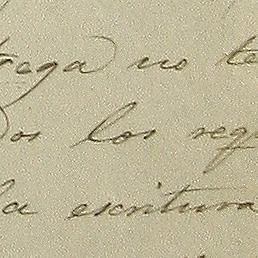 trega no te
dos los requ
la escritura